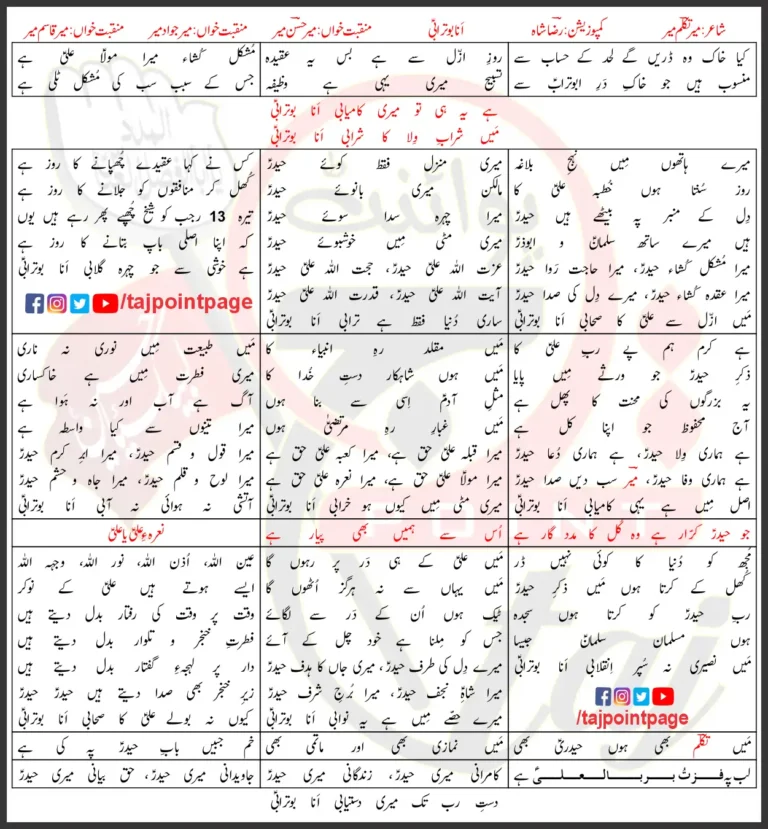 شاعر: میر تکلّم میر
کمپوزیشن: رضا شاہ
اَنا بوترابیؑ
منقبت خواں: میر حسن میر
منقبت خواں: میر جواد میر
منقبت خواں: میر قاسم میر
کیا خاک وہ ڈریں گے لحد کے حساب سے
منسوب ہیں جو خاکِ دَرِ ابوترابؑ سے
روزِ ازّل سے ہے بس یہ عقیدہ
تسبیح میری یہی ہے وظیفہ
مُشکل کُشاء میرا مولاؑ علیؑ ہے
جس کے سبب سب کی مُشکل ٹلی ہے
ہے یہ ہی تو میری کامیابی اَنا بوترابیؑ
مَیں شرابِ وِلا کا شرابی اَنا بوترابیؑ
میرے ہاتھوں مِیں نہجِ بلاغہ
روز سُنتا ہوں خُطبہ علیؑ کا
دِل کے منبر پہ بیٹھے ہیں حیدرؑ
ہیں میرے ساتھ سلمانؑ و ابوذرؑ
میرا مُشکل کُشاء حیدرؑ، میرا حاجت رَوا حیدرؑ
میرا عقدہ کُشاء حیدرؑ، میرے دِل کی صدا حیدرؑ
مَیں ازّل سے علیؑ کا صحابی اَنا بوترابیؑ
میری منزل فقط کوئے حیدرؑ
مالکن میری بانوئے حیدرؑ
میرا چہرہ سدا سوئے حیدرؑ
میری مٹی مِیں خوشبوئے حیدرؑ
عزت اللہ علیؑ حیدرؑ، حجت اللہ علیؑ حیدرؑ
آیت اللہ علیؑ حیدرؑ، قدرت اللہ علیؑ حیدرؑ
ساری دُنیا فقط ہے ترابی اَنا بوترابیؑ
کس نے کہا عقیدے چُھپانے کا روز ہے
کُھل کر منافقوں کو جلانے کا روز ہے
تیرہ 13 رجب کو شیخ چُھپے پھر رہے ہیں یوں
کہ اپنا اصلی باپ بتانے کا روز ہے
ہے خوشی سے جو چہرہ گلابی اَنا بوترابیؑ
/tajpointpage
ہے کرم ہم پے رب علیؑ کا
ذکرِ حیدرؑ جو ورثے مِیں پایا
یہ بزرگوں کی محنت کا پھل ہے
آج محفوظ جو اپنا کل ہے
ہے ہماری وِلا حیدرؑ، ہے ہماری دُعا حیدرؑ
ہے ہماری وفا حیدرؑ، میر سب دیں صدا حیدرؑ
اصل مِیں ہے یہی کامیابی اَنا بوترابیؑ
مَیں مقلد رہِ انبیاء کا
مَیں ہوں شاہکار دستِ خُدا کا
مثلِ آدمؑ اِسی سے بنا ہوں
مَیں غبارِ رہِ مرتضیٰؑ ہوں
میرا قبلہ علیؑ حق ہے، میرا کعبہ علیؑ حق ہے
میرا مولاؑ علیؑ حق ہے، میرا نعرہ علیؑ حق ہے
میری مٹی مِیں کیوں ہو خرابی اَنا بوترابیؑ
مَیں طبیعت مِیں نوری نہ ناری
میری فطرت مِیں ہے خاکساری
آگ ہے آب اور نہ ہَوا ہے
میرا تینوں سے کیا واسطہ ہے
میرا قول و قسم حیدرؑ، میرا ابرِ کرم حیدرؑ
میرا لوح و قلم حیدرؑ، میرا جاہ و حشم حیدرؑ
آتشی نہ ہوائی نہ آبی اَنا بوترابیؑ
جو حیدرِ کرّار ہے وہ کُل کا مدد گار ہے
اُس سے ہمیں بھی پیار ہے
نعرہءِ علیؑ یا علیؑ
مُجھ کو دُنیا کا کوئی نہیں ڈر
کُھل کے کرتا ہوں مَیں ذکرِ حیدرؑ
ربِ حیدرؑ کو کرتا ہوں سجدہ
ہوں مسلمان سلمانؑ جیسا
مَیں نصیری نہ سُپر اِنقلابی اَنا بوترابیؑ
/tajpointpage
مَیں علیؑ کے ہی دَر پر رہوں گا
مَیں یہاں سے نہ ہرگز اُٹھوں گا
ٹیک ہوں اُن کے دَر سے لگائے
جس کو مِلنا ہے خود چل کے آئے
میرے دِل کی طرف حیدرؑ، میری جاں کا ہدف حیدرؑ
میرا شاہِؑ نجف حیدرؑ، میرا بُرجِ شرف حیدرؑ
میرے حصّے مِیں ہے یہ نوابی اَنا بوترابیؑ
عین اللہ، اُذن اللہ، نور اللہ، وجیہہ اللہ
ایسے ہوتے ہیں علیؑ کے نوکر
وقت پر وقت کی رفتار بدل دیتے ہیں
فطرتِ خنجر و تلوار بدل دیتے ہیں
دار پر لہجہءِ گفتار بدل دیتے ہیں
زیرِ خنجر بھی صدا دیتے ہیں حیدرؑ حیدرؑ
کیوں نہ بولے علیؑ کا صحابی اَنا بوترابیؑ
مَیں تکلّم بھی ہوں حیدریؑ بھی
مَیں نمازی بھی اور ماتمی بھی
خم جبیں بابِ حیدرؑ پہ کی ہے
لب پہ فزتُ بربِ العلیٰ ہے
کامرانی میری حیدرؑ، زندگانی میری حیدرؑ
جاویدانی میری حیدرؑ، حق بیانی میری حیدرؑ
دستِ رب تک میری دستیابی اَنا بوترابیؑ